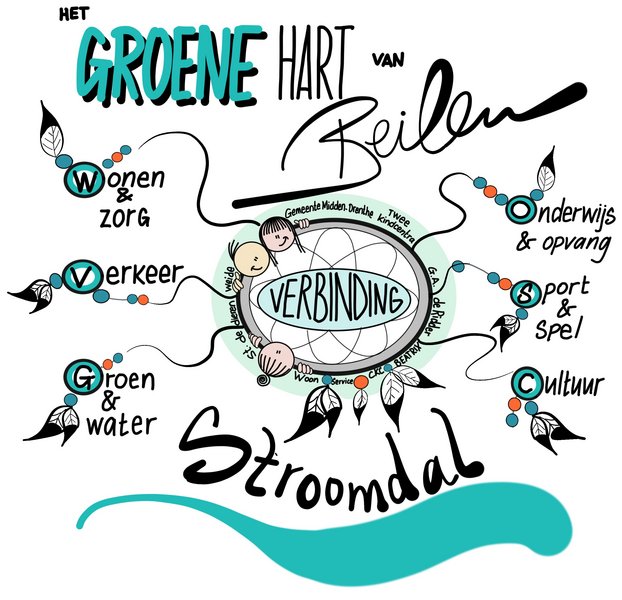 HET
GROENE HART VAN
Beilen
Wonen
&
ZORG
Verkeer
Groen
&
water
Gemeente Midden-Drenthe
Twee
kindcentra
G.A. de Ridder
BEATRIX
CKC
Service
Woon
weide
VERBINDING
Onderwijs
& opvang
Sport
&
Spel
Cultuur
Stroomdal